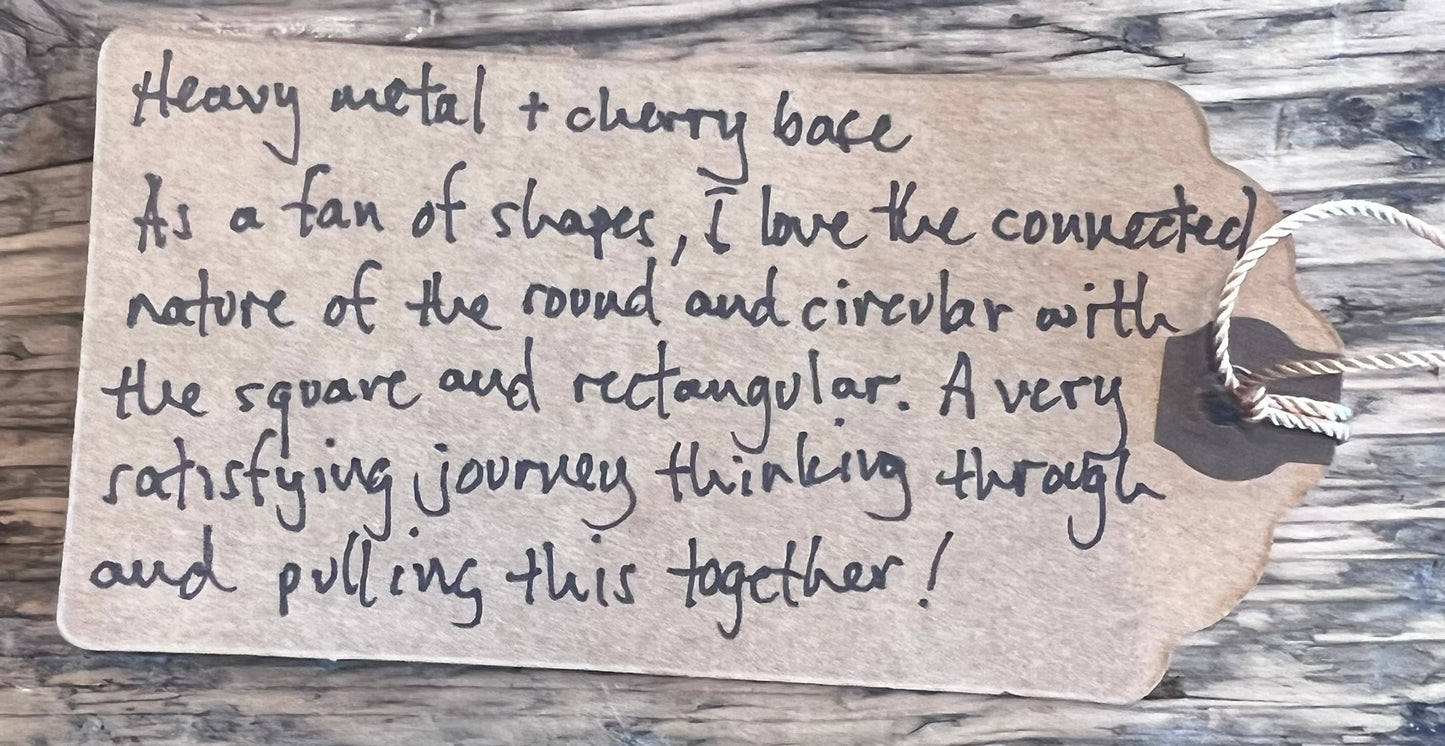 Heavy metal + cherry base
As a fan of shapes, I love the connected
nature of the round and circular with
the square and rectangular. A very
satisfying journey thinking through
and pulling this together!